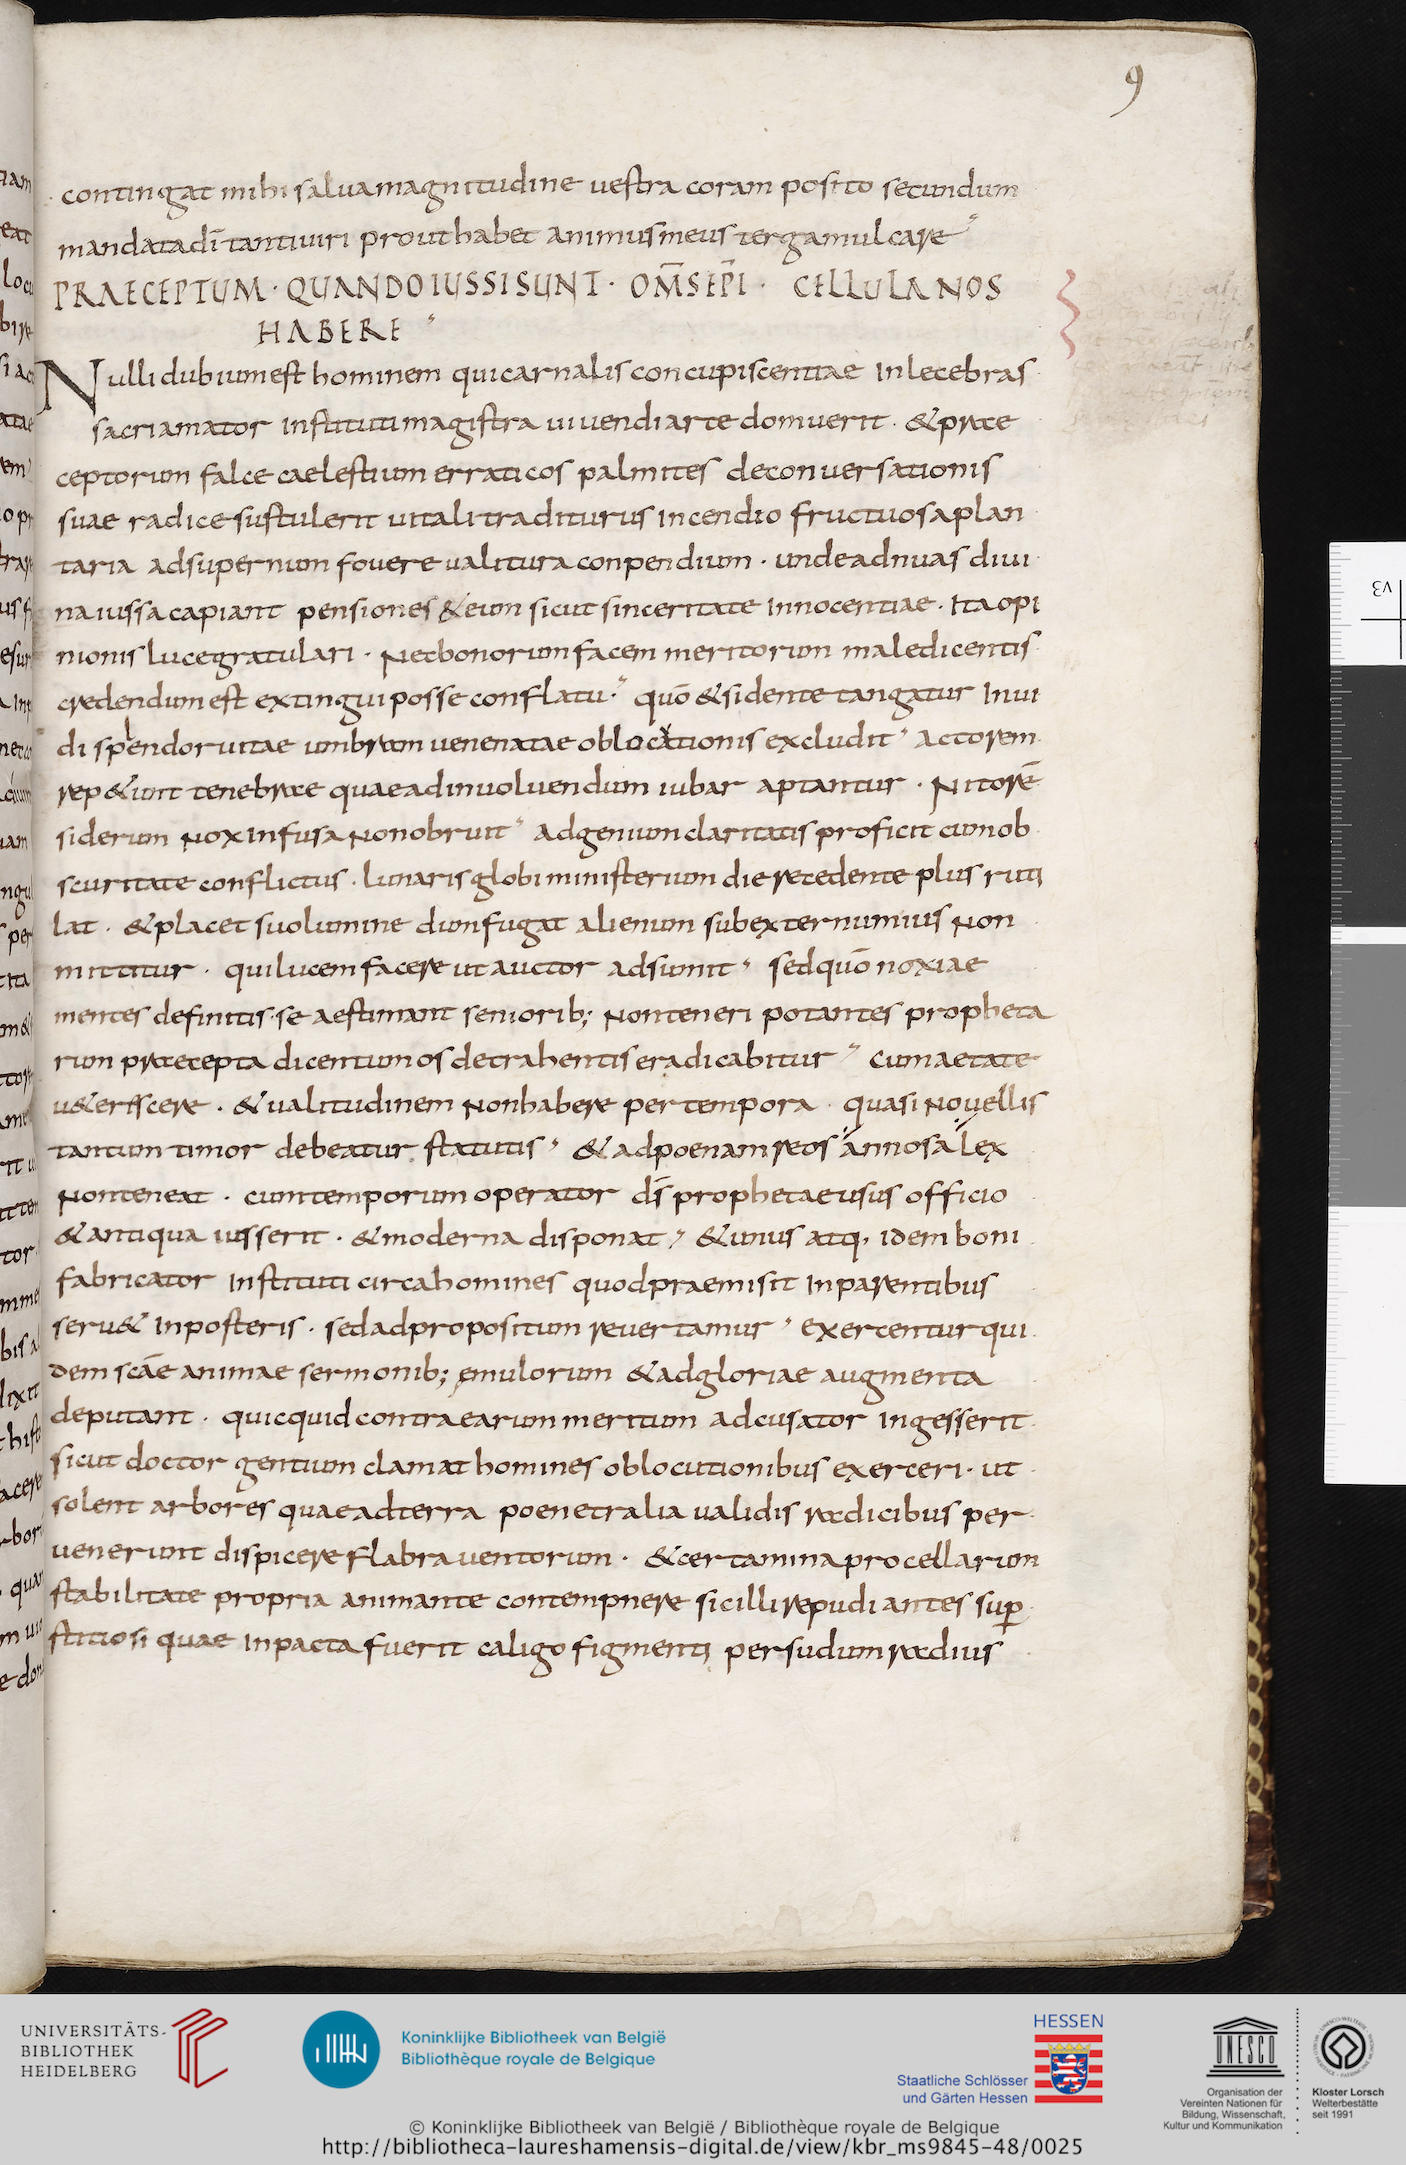 9
contingat mihi salua magnitudine uestra coram posito secundum
mandata dī tanti uiri prout habet animus meus terga mulcare
PRAECEPTUM · QUANDO IUSSI SUNT · OM̄S EP̄I · CELLULANOS
HABERE
Nulli dubium est hominem qui carnalis concupiscentiae inlecebras
sacri amator instituti magistra uiuendi arte domuerit · & prae
ceptorum falce caelestium erraticos palmites deconuersationis
suae radice sustulerit uitali traditurus incendio fructuosa plan
taria ad supernum fouere ualitura conpendium · unde adnuas diui
na iussa capiant pensiones & eum sicut sinceritate innocentiae · ita opi
nionis luce gratulari · nec bonorum facem meritorum maledicentis
credendum est extingui posse conflatu · quō & sidente tangatur inui
di splendor uitae umbram uenenatae oblocationis excludit, actorem
rep&unt tenebrae quae ad inuoluendum iubar aptantur · nitorē
siderum nox infusa non obruit, ad genium claritatis proficit cum ob
scuritate conflictus · lunaris globi ministerium die recedente plus ruti
lat · & placet suo lumine dum fugat alienum sub externum ius non
mittitur · qui lucem facere ut auctor adsumit, sed quō noxiae
mentes definitis se aestimant seniorib; non teneri potantes propheta
rum praecepta dicentum os detrahentis eradicabitur, cum aetate
u&eriscere · & ualitudinem non habere per tempora · quasi nouellis
tantum timor debeatur statutis, & ad poenam reos annosa lex
non teneat · cum temporum operator dś prophetae usus officio
& antiqua iusserit · & moderna disponat, & unus atq, idem boni
fabricator instituti circa homines quod praemisit in parentibus
seru& in posteris · sed ad propositum reuertamur, exercentur qui
dem scāe animae sermonib; emulorum & ad gloriae augmenta
deputant · quicquid contra earum meritum adcusator ingesserit
sicut doctor gentium clamat homines oblocutionibus exerceri · ut
solent arbores quae ad terra poenetralia ualidis radicibus per
uenerunt dispicere flabra uentorum · & certamina procellarum
stabilitate propria animante contempnere sic illi repudiantes sup̄
stitiosi quae inpacta fuerit caligo figmenti per sudum radius
v3
UNIVERSITÄTS-
BIBLIOTHEK
HEIDELBERG
Koninklijke Bibliotheek van België
Bibliothèque royale de Belgique
HESSEN
Staatliche Schlösser
und Gärten Hessen
UNESCO
Organisation der
Vereinten Nationen für
Bildung, Wissenschaft,
Kultur und Kommunikation
Kloster Lorsch
Welterbestätte
seit 1991
© Koninklijke Bibliotheek van België / Bibliothèque royale de Belgique
http://bibliotheca-laureshamensis-digital.de/view/kbr_ms9845-48/0025